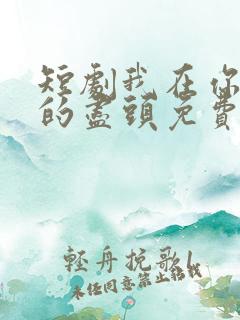 短劇我在你
的盡頭免費
輕舟挽歌l
未經同意禁止轉載